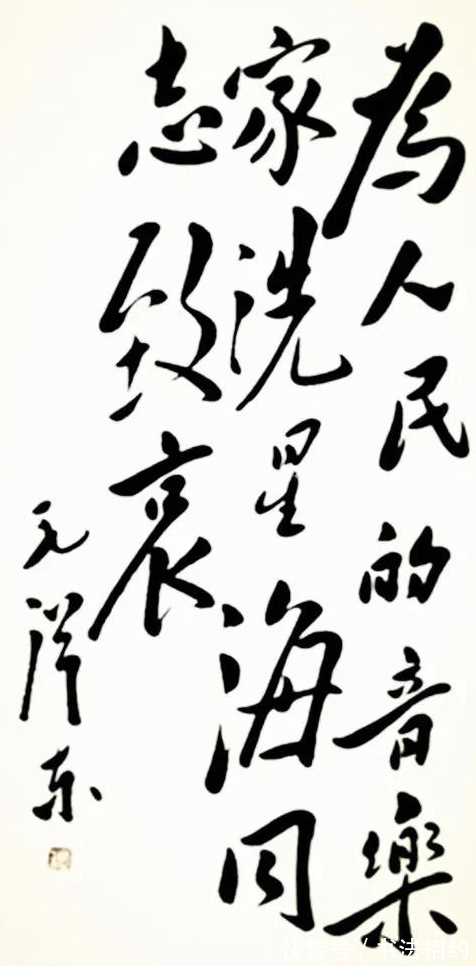 為人民的音樂
家洗星海同
志致哀
毛泽东
快传号/书法相约